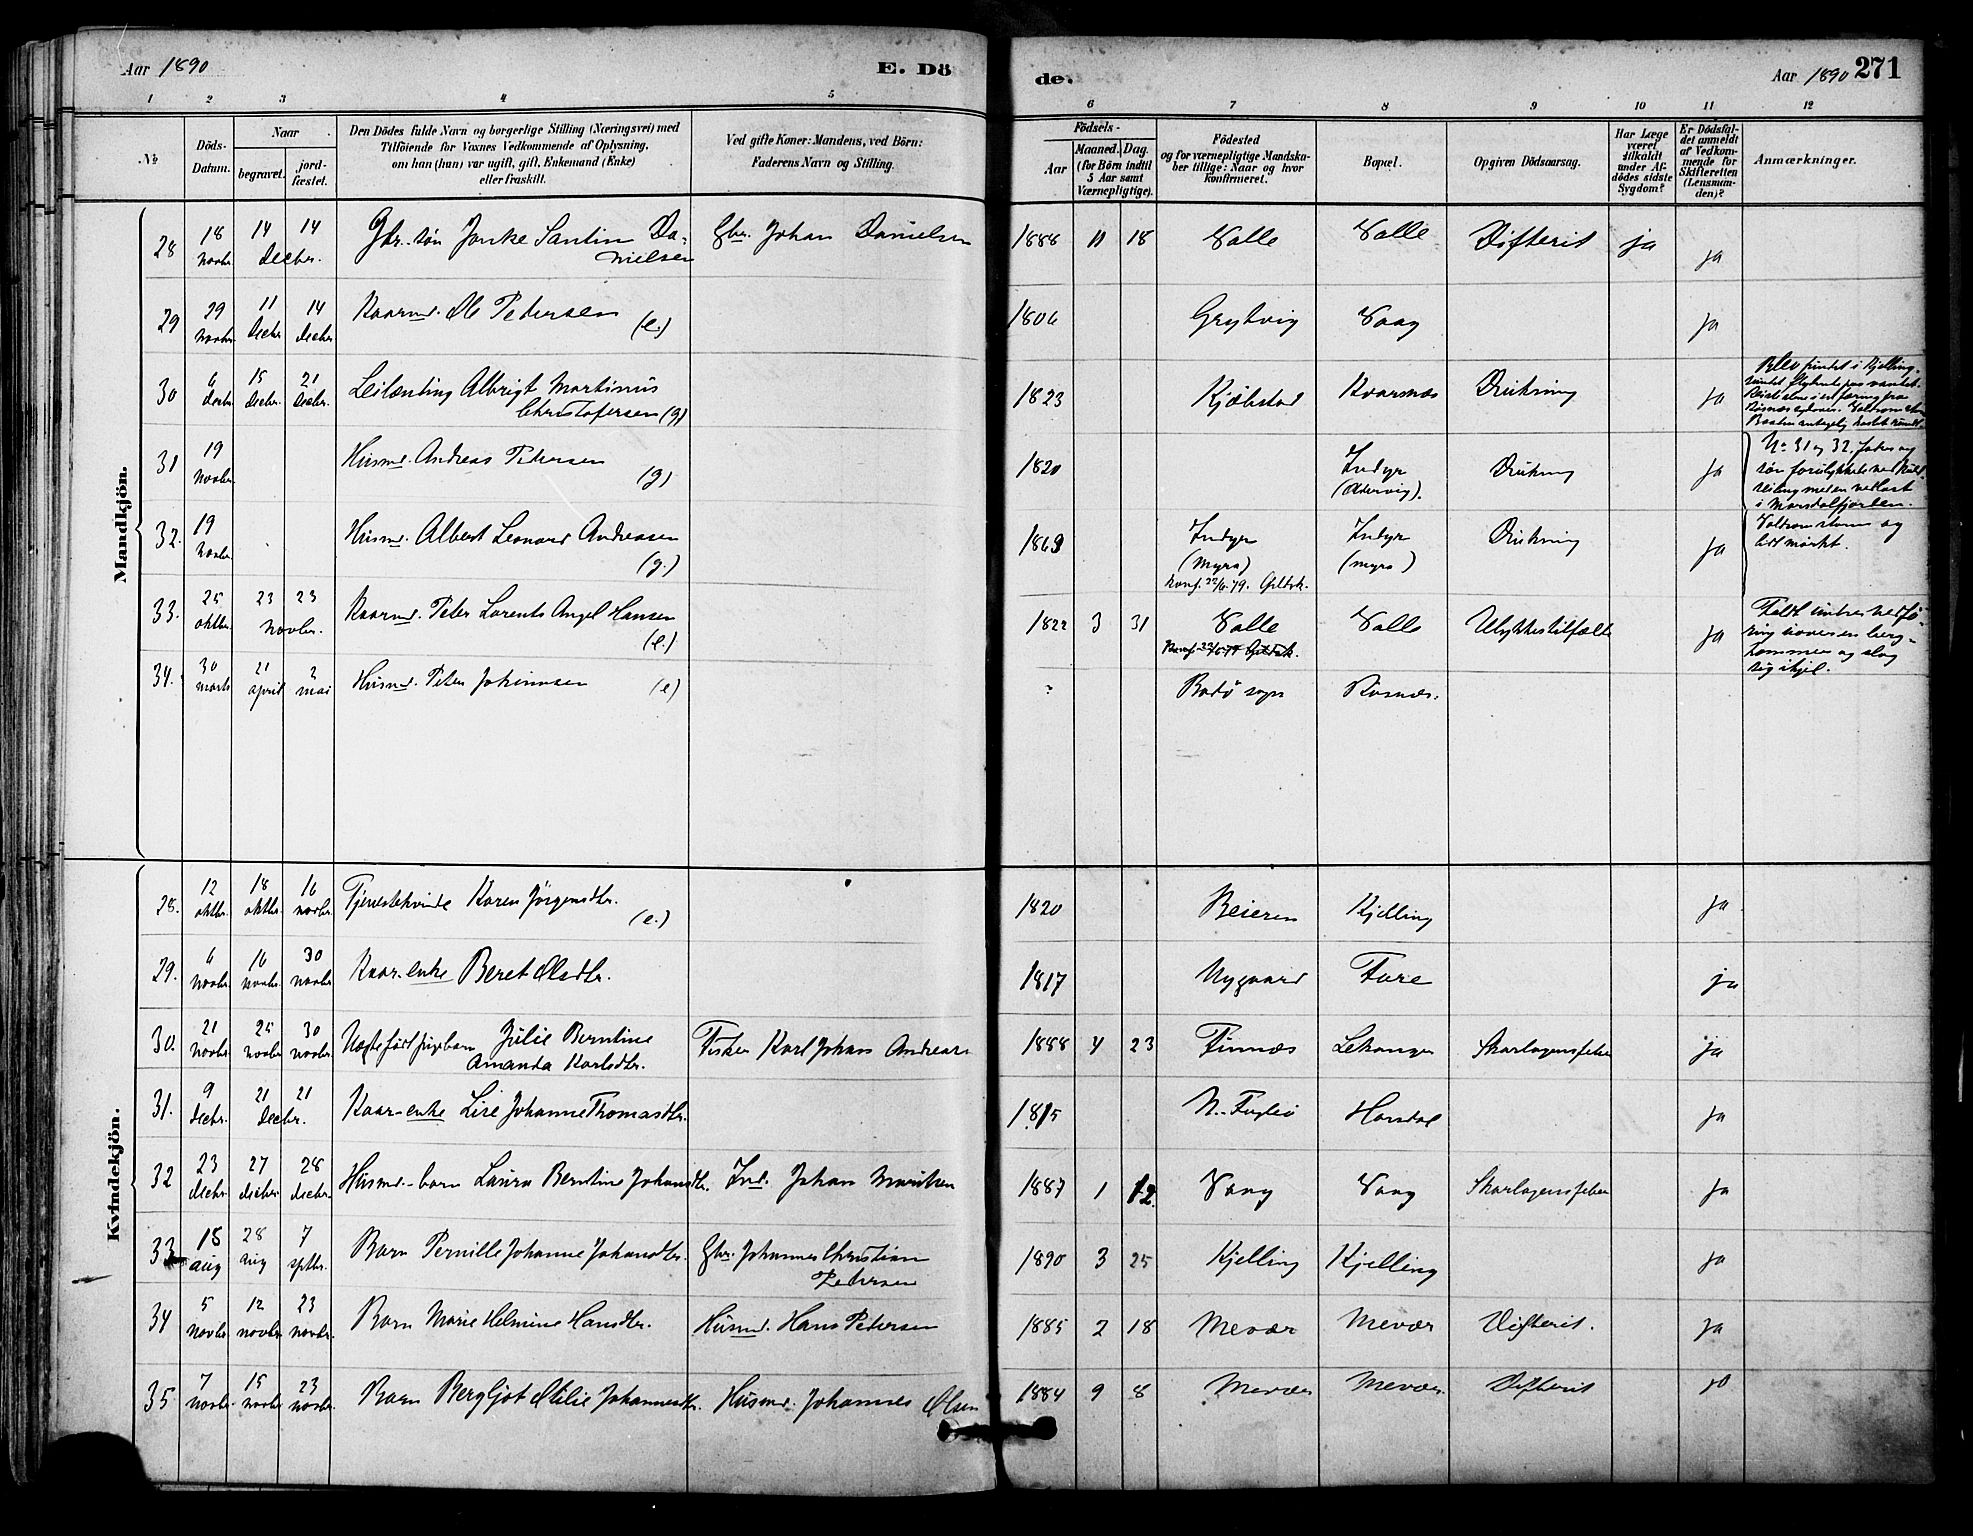 Aar 1890
E. Dö
de.
Aar 1890 271
1 2 3 4 5 6 7 8 9 10 11 12
No
Döds-
Datum.
Naar
begravet.
jord-
fæstet.
Den Dödes fulde Navn og borgerlige Stilling (Næringsvei) med
Tilföiende for Voxnes Vedkommende af Oplysning,
om han (hun) var ugift, gift, Enkemand (Enke)
eller fraskilt.
Ved gifte Koner: Mandens, ved Börn:
Faderens Navn og Stilling.
Födsels-
Aar
Maaned. Dag.
(for Börn indtil
5 Aar samt
Værnepligtige).
Födested
og for værnepligtige Mandska-
ber tillige: Naar og hvor
konfirmeret.
Bopæl.
Opgiven Dödsaarsag.
Har Læge
været
tilkaldt
under Af-
dödes sidste
Sygdom?
Er Dödsfal-
det anmeldt
af Vedkom-
mende for
Skifteretten
(Lensman-
den)?
Anmærkninger.
Mandkjön.
28 18 novbr. 14 14 decbr. Gbr.-sön Jonke Santin Da-
nielsen Gbr. Johan Danielsen 1888 11 18 Valle Valle Difterit ja ja
29 29 novbr. 11 decbr. 14 decbr. Kaarmd. Ole Pedersen (e.) 1806 Grytvig Vaag ja
30 6 decbr. 15 decbr. 21 decbr. Leilænding Albrigt Martinus
Christofersen (g) 1823 Kjøbstad Kvarsnæs Drukning ja
31 19 novbr. Husmd. Andreas Pedersen (g) 1820 Indyr Drukning ja No. 31 og 32, fader og
sön forulykkede
i Morsdalfjorden.
32. 19 novbr. Husmd. Albert Leonard Andreasen (g.) 1863 Indyr
(Myra) Indyr
(myra) Drukning ja Voldsom storm og
lidt mörkt.
33. 25 oktbr. 23 23 novbr. Kaarmd. Peter Lorents Angel Hansen (e.) 1822 3 31 Valle Valle Ulykkestilfælde ja
og slog
sig ihjel.
34. 30 marts 21 april 2 mai Husmd. Peter Johannesen (e) ? Bodö sogn
Kvindekjön.
28. 12 oktbr. 18 oktbr. 16 novbr. Tjenestekvinde Karen Jörgensdtr. (e.) 1820 Beieren Kjelling ja
29. 6 novbr. 16 novbr. 30 novbr. Kaar-enke Beret Olsdtr. 1817 Nygaard Fore ja
30. 21 novbr. 25 novbr. 30 novbr. Uægtefödt pigebarn Julie Berntine
Amanda Karlsdtr. Fisker Karl Johan Andreas 1888 4 23 Finnæs Lekanger Skarlagensfeber ja
31. 9 decbr. 21 21 decbr. Kaar-enke Lise Johanne Thomasdtr. 1815 N.-Fuglö Horsdal ja
32 23 decbr. 27 decbr. 28 decbr. Husmd.-barn Laura Berntine Johansdtr. Ind. Johan 1887 1 12. Vaag Vaag Skarlagensfeber ja
33 18 aug 28 aug 7 sptbr. Barn Pernille Johanne Johansdtr. Gbr. Johannes Christian
Pedersen 1890 3 25 Kjelling Kjelling ja
34 5 novbr. 12 novbr. 23 novbr. Barn Marie Helmine Hansdtr. Husmd. Hans Petersen 1885 2 18 Mevær Mevær Difterit. ja
35 7 novbr. 15 novbr. 23 novbr. Barn Bergljot Otilie Johannesdtr. Husmd. Johannes Olsen 1884 9 8 Mevær Mevær Difterit ja